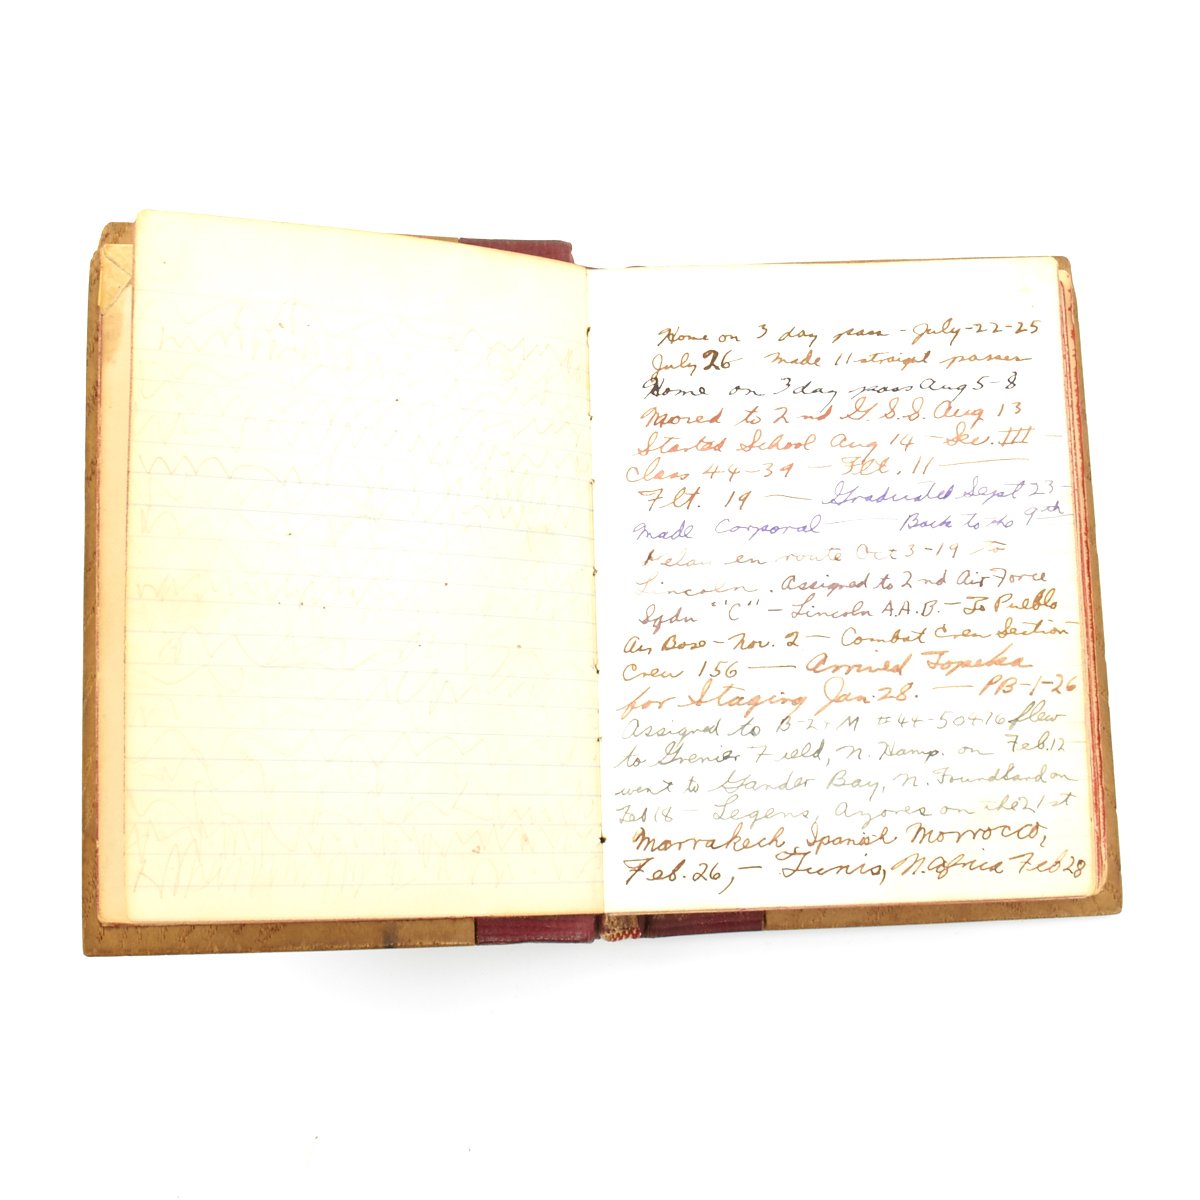 Home on 3 day pass - July-22-25
July 26 made 11 straight passes
Home on 3 day pass Aug 5-8
Moved to 2nd G.S.S. Aug 13
Started School Aug 14 - Sec. III -
Class 44-39 - Flt. 11 —
Flt. 19 — Graduated Sept 23 -
Made Corporal — Back to the 9th
Delay en route Oct 3-19 to
Lincoln. Assigned to 2nd Air Force
Sqdn "C" - Lincoln A.A.B. - To Pueblo
Air Base - Nov. 2 - Combat Crew Section
Crew 156 — Arrived Topeka
for Staging Jan. 28. — PB-1-26
Assigned to M #44-50416 flew
to Grenier Field, N. Hamp. on Feb. 12
went to Gander Bay, N. Foundland on
Feb 18 - Legens, Azores on the 21st
Marrakech, Spanish Morrocco,
Feb. 26, - Tunis, N. Africa Feb 28